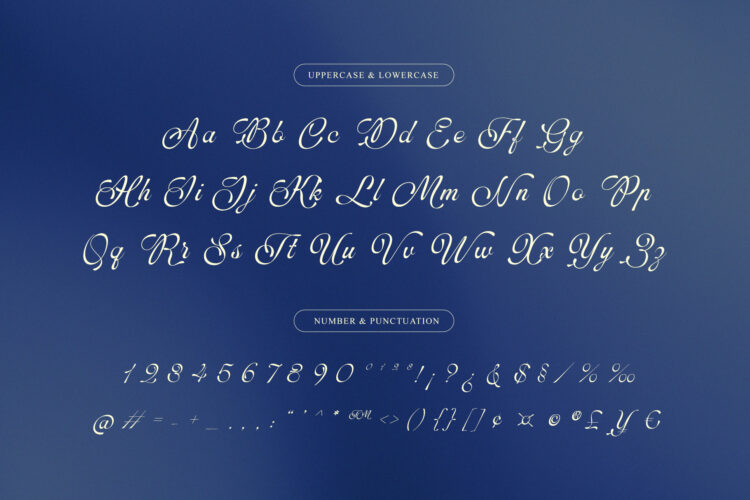 UPPERCASE & LOWERCASE
Aa Bb Cc Dd Ee Ff Gg
Hh Ii Jj Kk Ll Mm Nn Oo Pp
Qq Rr Ss Tt Uu Vv Ww Xx Yy Zz
NUMBER & PUNCTUATION
1 2 3 4 5 6 7 8 9 0 ⁰ ¹ ² ³ ! ¡ ? ¿ & $ § / % ‰
@ # = - + _ . , . : “ ’ ^ * ™ < > ( ) { } [ ] ¢ ¤ © ® £ ¥ €